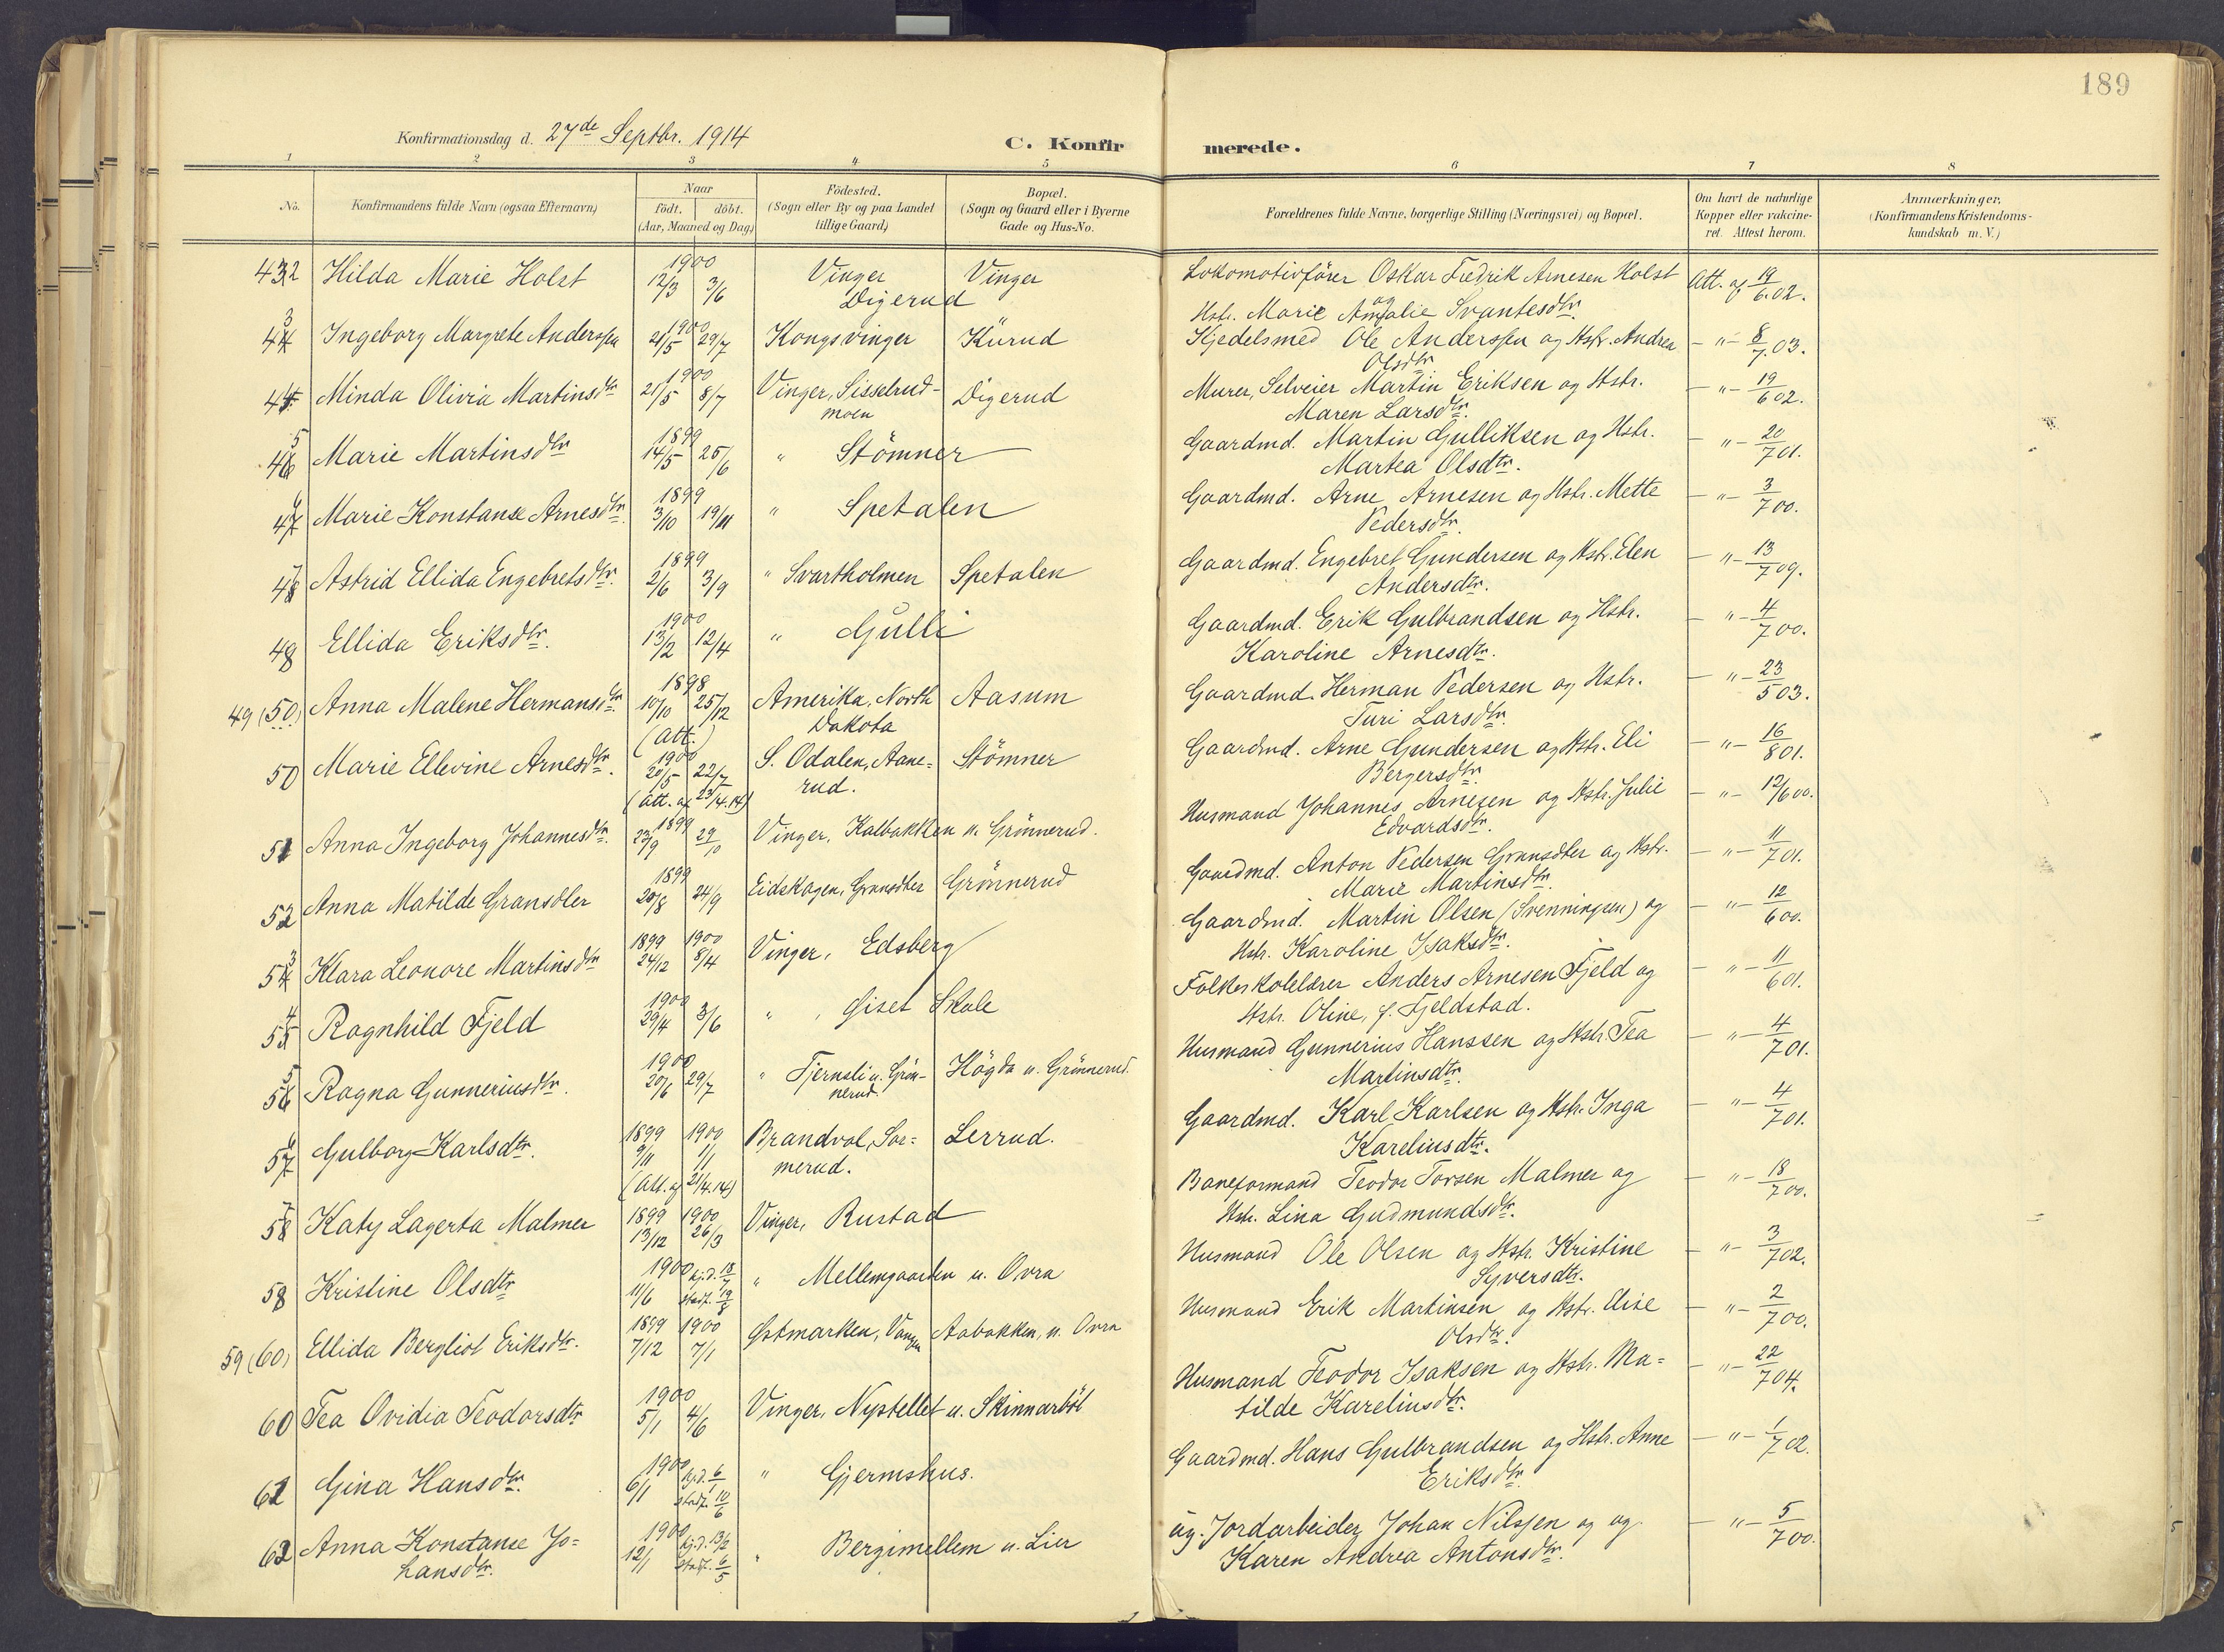 189
Konfirmationsdag d. 27de Septbr. 1914
C. Konfirmerede.
1 2 3 4 5 6 7 8
No.
Konfirmandens fulde Navn (ogsaa Efternavn)
Naar
födt. döbt.
(Aar, Maaned og Dag)
Födested.
(Sogn eller By og paa Landet
tillige Gaard)
Bopæl.
(Sogn og Gaard eller i Byerne
Gade og Hus-No.
Forældrenes fulde Navne, borgerlige Stilling (Næringsvei) og Bopæl.
Om havt de naturlige
Kopper eller vakcine-
ret. Attest herom.
Anmærkninger,
(Konfirmandens Kristendoms-
kundskab m. V.)
432 Hilda Marie Holst 1900 12/3 3/6 Vinger Vinger Lokomotivförer Oskar Fredrik Arnesen Holst Att. af 19/6.02.
Digerud og Hstr. Marie Amalie Svantesdtr.
43 Ingeborg Margrete Anderssen 1900 21/5 29/7 Kongsvinger Kürud Kjedelsmed Ole Anderssen og Hstr. Andrea - " - 8/7.03.
Olsdtr.
44 Minda Olivia Martinsdtr 1900 21/5 8/7 Vinger, Sisselrud- Digerud Murer, Selveier Martin Eriksen og Hstr. - " - 19/6 02.
moen Maren Larsdtr.
45 Marie Martinsdtr 1899 14/5 25/6 " Stömner Gaardmd. Martin Gulliksen og Hstr. - " - 20/7 01.
Martea Olsdtr.
46 Marie Konstanse Arnesdtr. 1899 3/10 19/11 " Spetalen Gaardmd. Arne Arnesen og Hstr. Mette - " - 3/7 00.
Pedersdtr.
47 Astrid Ellida Engebretsdtr. 1899 2/6 3/9 " Svartholmen Spetalen Gaardmd. Engebret Gundersen og Hstr. Elen - " - 13/7 09.
Andersdtr.
48 Ellida Eriksdtr. 1900 13/2 12/4 " Gulli Gaardmd. Erik Gulbrandsen og Hstr. - " - 4/7 00.
Karoline Arnesdtr.
49 (50) Anna Malene Hermansdtr 1898 10/10 25/12 Amerika, North Aasum Gaardmd. Herman Pedersen og Hstr. - " - 23/5 03.
(Att.) Dakota Turi Larsdtr.
50 Marie Ellevine Arnesdtr. 1900 20/5 22/7 S. Odalen, Aane= Stömner Gaardmd. Arne Gundersen og Hstr. Eli - " - 16/8 01.
(Att. af 23/4.14) rud. Bergersdtr.
51 Anna Ingeborg Johannesdtr. 1899 23/9 29/10 Vinger, Kalbakken u. Grönnerud. Husmand Johannes Arnesen og Hstr. Julie - " - 12/6 00.
Edvardsdtr.
52 Anna Matilde Gransdtler 1899 20/8 24/9 Eidskogen, Grönnerud Gaardmd. Anton Pedersen og Hstr. - " - 11/7 01.
Marie Martinsdtr.
53 Klara Leonore Martinsdtr 1899 24/12 1900 8/4 Vinger, Edsberg Gaardmd. Martin Olsen (Svenningsen) og - " - 12/6 00.
Hstr. Karoline Isaksdtr.
54 Ragnhild Fjeld 1900 29/4 3/6 " , Giset Skole Folkeskolelærer Anders Arnesen Fjeld og - " - 11/6 01.
Hstr. Oline, f. Fjeldstad.
55 Ragna Gunneriusdtr. 1900 20/6 29/7 " Tjernsli u. Grön- Högda u. Grönnerud. Husmand Gunnerius Hanssen og Hstr. Tea - " - 4/7 01.
nerud. Martinsdtr.
56 Gulborg Karlsdtr. 1899 9/11 1900 1/1 Brandval, Sor= Lerrud. Gaardmd. Karl Karlsen og Hstr. Inga - " - 4/7 01.
(Att. af 21/4.14) merud. Kareliusdtr.
57 Katy Lagerta Malmer 1899 13/12 1900 26/3 Vinger, Rustad Baneformand Teodor Torsen Malmer og - " - 18/7 00.
Hstr. Lina Gudmundsdtr.
58 Kristine Olsdtr 1900 11/6 hj.d. 18/7 stadf. 19/8 " Mellemgaarden u. Ovra Husmand Ole Olsen og Hstr. Kristine - " - 3/7 02.
Syversdtr.
59 (60) Ellida Bergliot Eriksdtr. 1899 7/12 1900 7/1 Östmarken, Vinger Aabakken, u. Ovra Husmand Erik Martinsen og Hstr. Elise - " - 2/7 00.
Olsdtr.
60 Tea Ovidia Teodorsdtr 1900 5/1 4/6 Vinger, Nystellet u. Skinnarböl Husmand Teodor Isaksen og Hstr. Ma= - " - 22/7 04.
tilde Kareliusdtr.
61 Gina Hansdtr. 1900 6/1 hj.d. 6/1 stadf. 10/6 " Gjermshus. Gaardmd. Hans Gulbrandsen og Hstr. Anne - " - 1/7 02.
Eriksdtr.
62 Anna Konstanse Jo= 1900 12/1 hj.d. 13/2 stadf. 6/5 " Bergimellem u. Lier ug. Jordarbeider Johan Nilssen og ug. - " - 5/7 00.
hansdtr. Karen Andrea Antonsdtr.